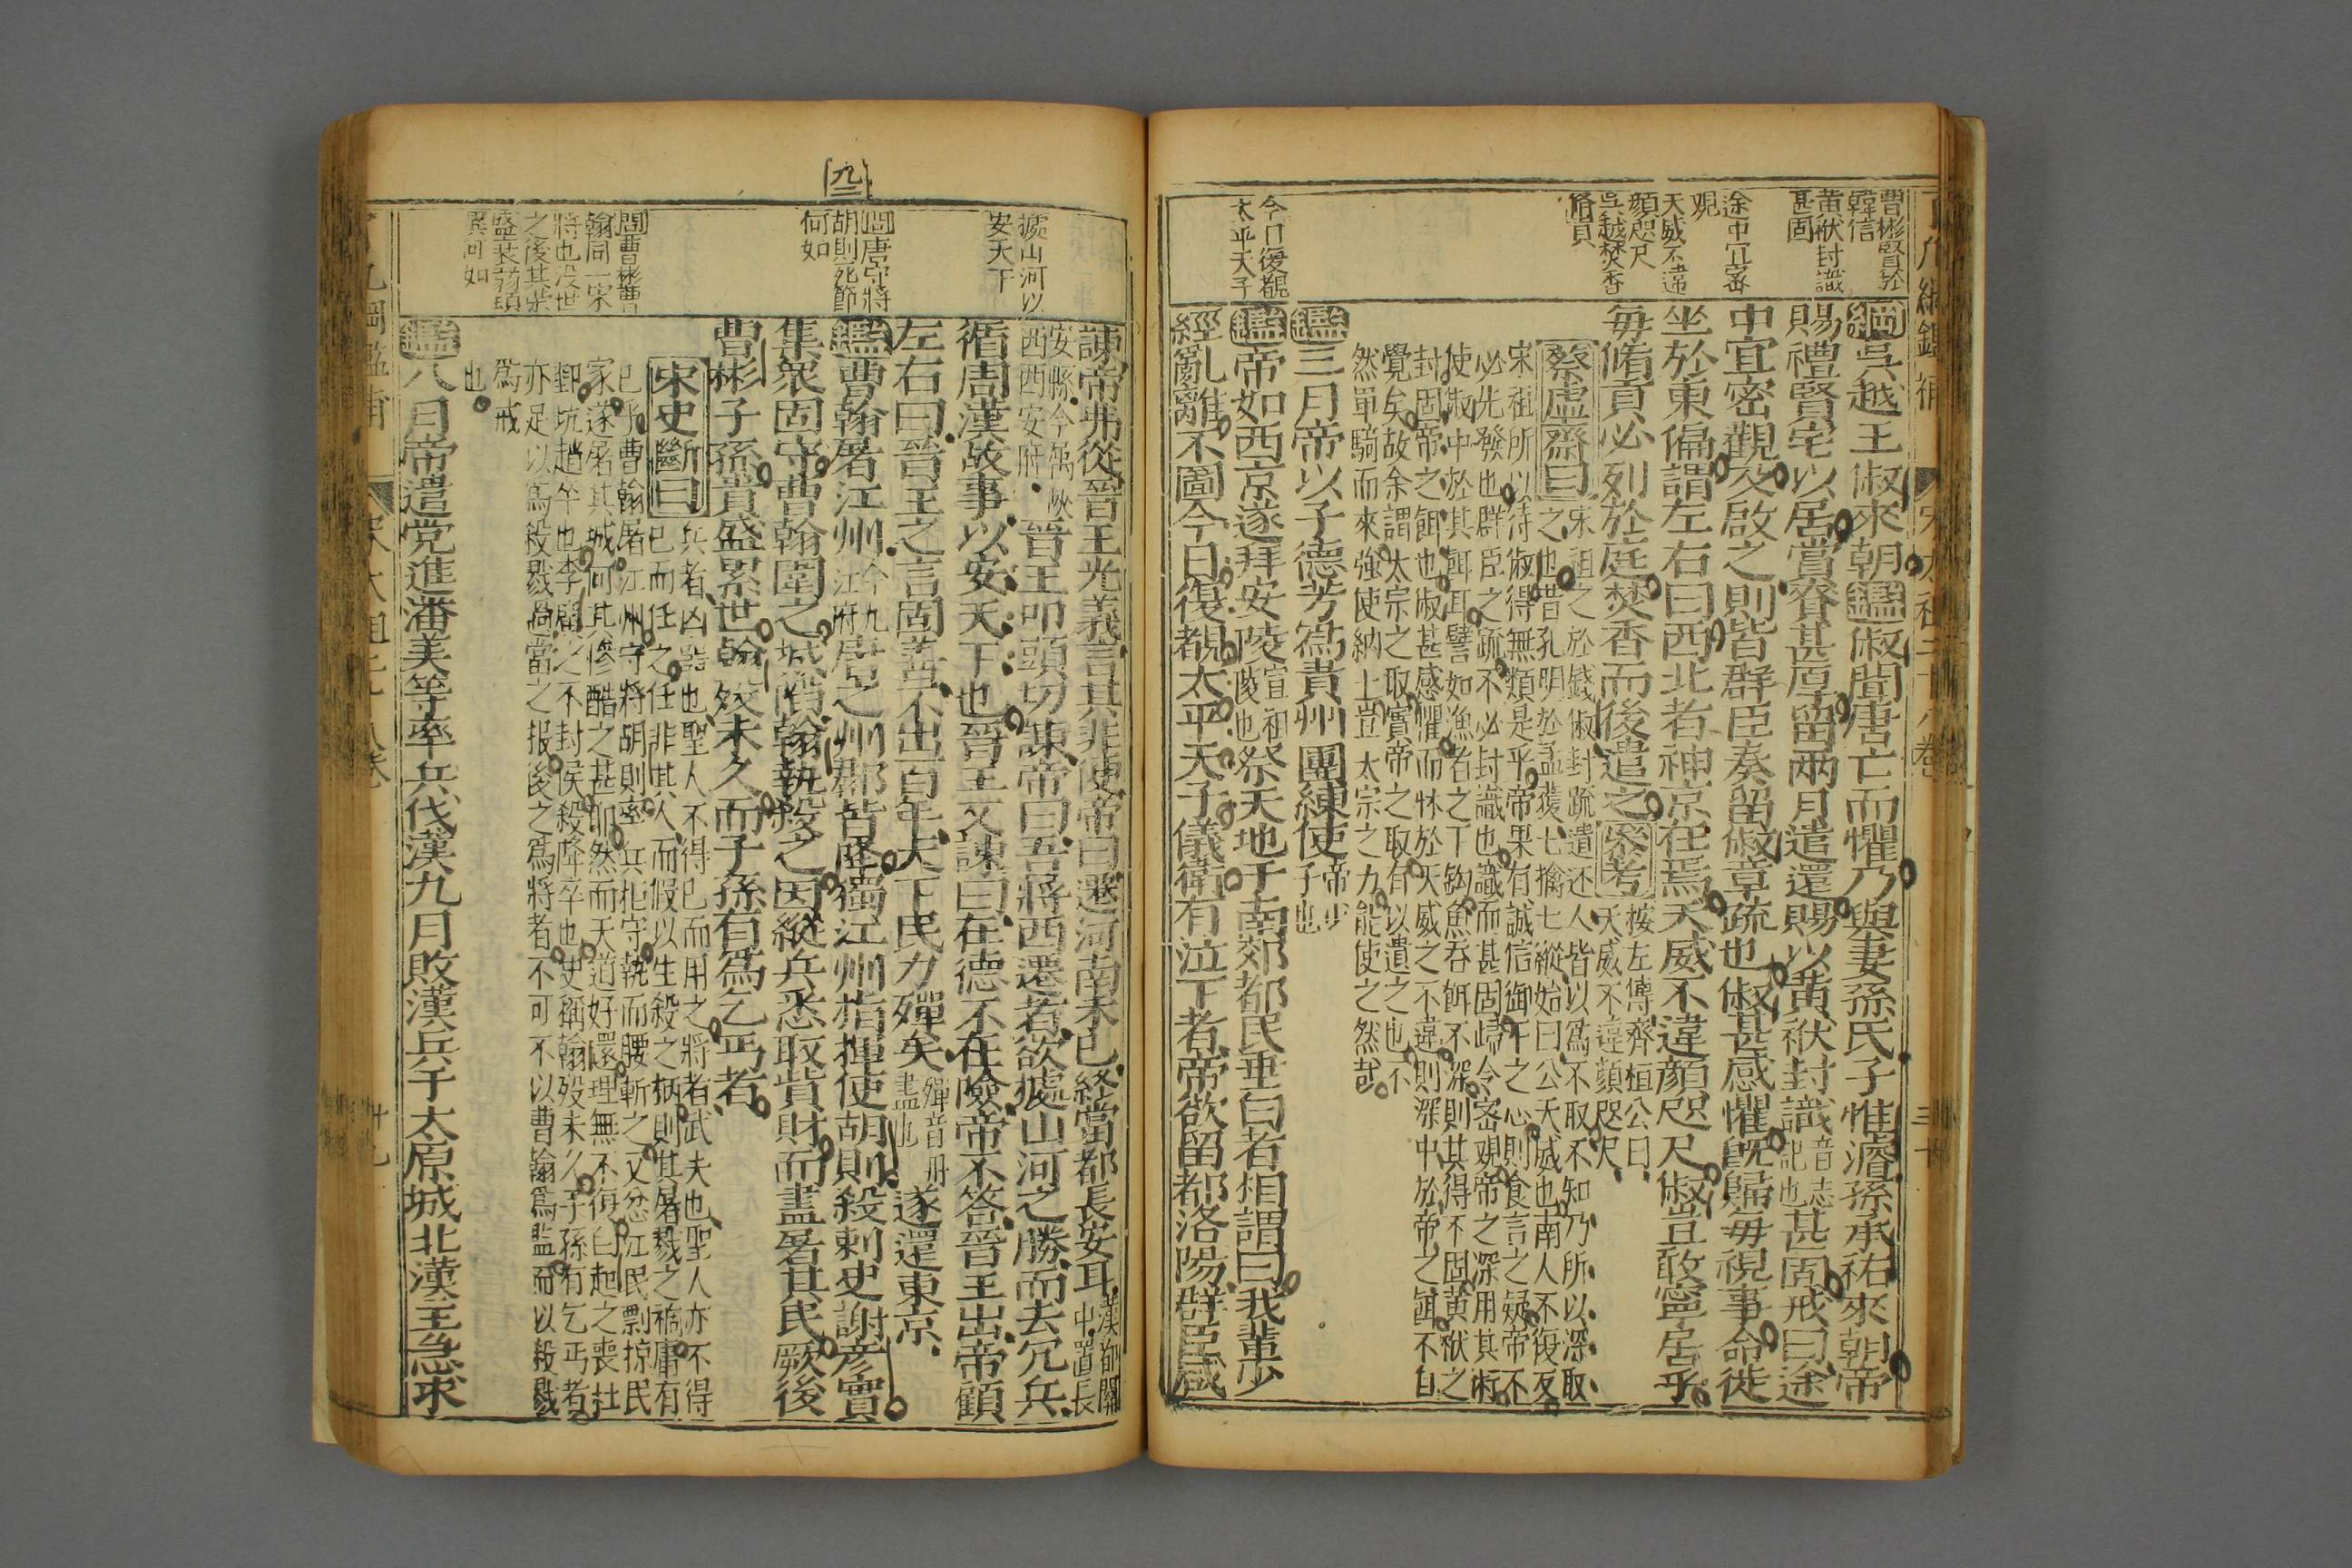 曹彬賢於
韓信
黃袱封識
甚固
途中宜密
觀
天威不違
顏咫尺
吳越焚香
脩貢
今日復覩
太平天子
綱吳越王俶來朝鑑俶聞唐亡而懼乃與妻孫氏子惟濬孫承祐來朝帝
賜禮賢宅以居賞賚甚厚留兩月遣還賜以黃袱封識音志記也甚固戒曰途
中宜密觀及啟之則皆群臣奏留俶章疏也俶甚感懼既歸每視事命徙
坐於東偏謂左右曰西北者神京在焉天威不違顏咫尺俶豈敢寧居乎
每脩貢必列於庭焚香而後遣之叅考按左傳齊桓公曰天威不違顏咫尺
蔡虛齋曰宋祖之於錢俶封疏遺还人皆以爲不取不知乃所以深取
之也昔孔明於孟獲七擒七縱始曰公天威也南人不復反
宋祖所以待俶得無類是乎帝果有誠信御下之心則食言之疑帝不
必先發也群臣之疏不必封識也識而甚固歸令密观帝之深用其術
使俶中於其餌耳譬如漁者之下鈎魚吞餌不深則其得不固黃袱之
封固帝之餌也俶甚感懼而怵於天威之不違則深中於帝之餌不自
覺矣故余謂太宗之取實帝之取有以遺之也不
然單騎而來強使納上豈太宗之力能使之然哉
鑑三月帝以子德芳爲貴州團練使帝少子也
鑑帝如西京遂拜安陵宣祖陵也祭天地于南郊都民垂白者相謂曰我輩少
經亂離不圖今日復覩太平天子儀衛有泣下者帝欲留都洛陽群臣咸
九二
據山河以
安天下
問唐守將
胡則死節
何如
問曹彬曹
翰同一宋
將也没世
之後其榮
盛衰弱頓
異何如
諫帝弗從晉王光義言其非便帝曰遷河南未已終當都長安耳漢都關中置長
安縣今爲陜西西安府晉王叩頭切諫帝曰吾將西遷者欲據山河之勝而去冗兵
循周漢故事以安天下也晉王又諫曰在德不在險帝不答晉王出帝顧
左右曰晉王之言固善不出百年天下民力殫矣殫音丹盡也遂還東京
鑑曹翰屠江州今九江府唐之州郡皆降獨江州指揮使胡則殺刺史謝彥實
集衆固守曹翰圍之城陷翰執殺之因縱兵悉取貲財而盡屠其民厥後
曹彬子孫貴盛累世翰歿未久而子孫有爲乞丐者
宋史斷曰兵者凶器也聖人不得已而用之將者武夫也聖人亦不得
已而任之任非其人而假以生殺之柄則其屠戮之禍庸有
已乎曹翰屠江州守將胡則率兵拒守執而腰斬之又忿江民剽掠民
家遂屠其城何其慘酷之甚耶然而天道好還理無不復白起之喪杜
郵坑趙卒也李廣之不封侯殺降卒也史稱翰殁未久子孫有乞丐者
亦足以爲殺戮過當之报後之爲將者不可不以曹翰爲監而以殺戮
爲戒
也
鑑八月帝遣党進潘美等率兵伐漢九月敗漢兵于太原城北漢主急求